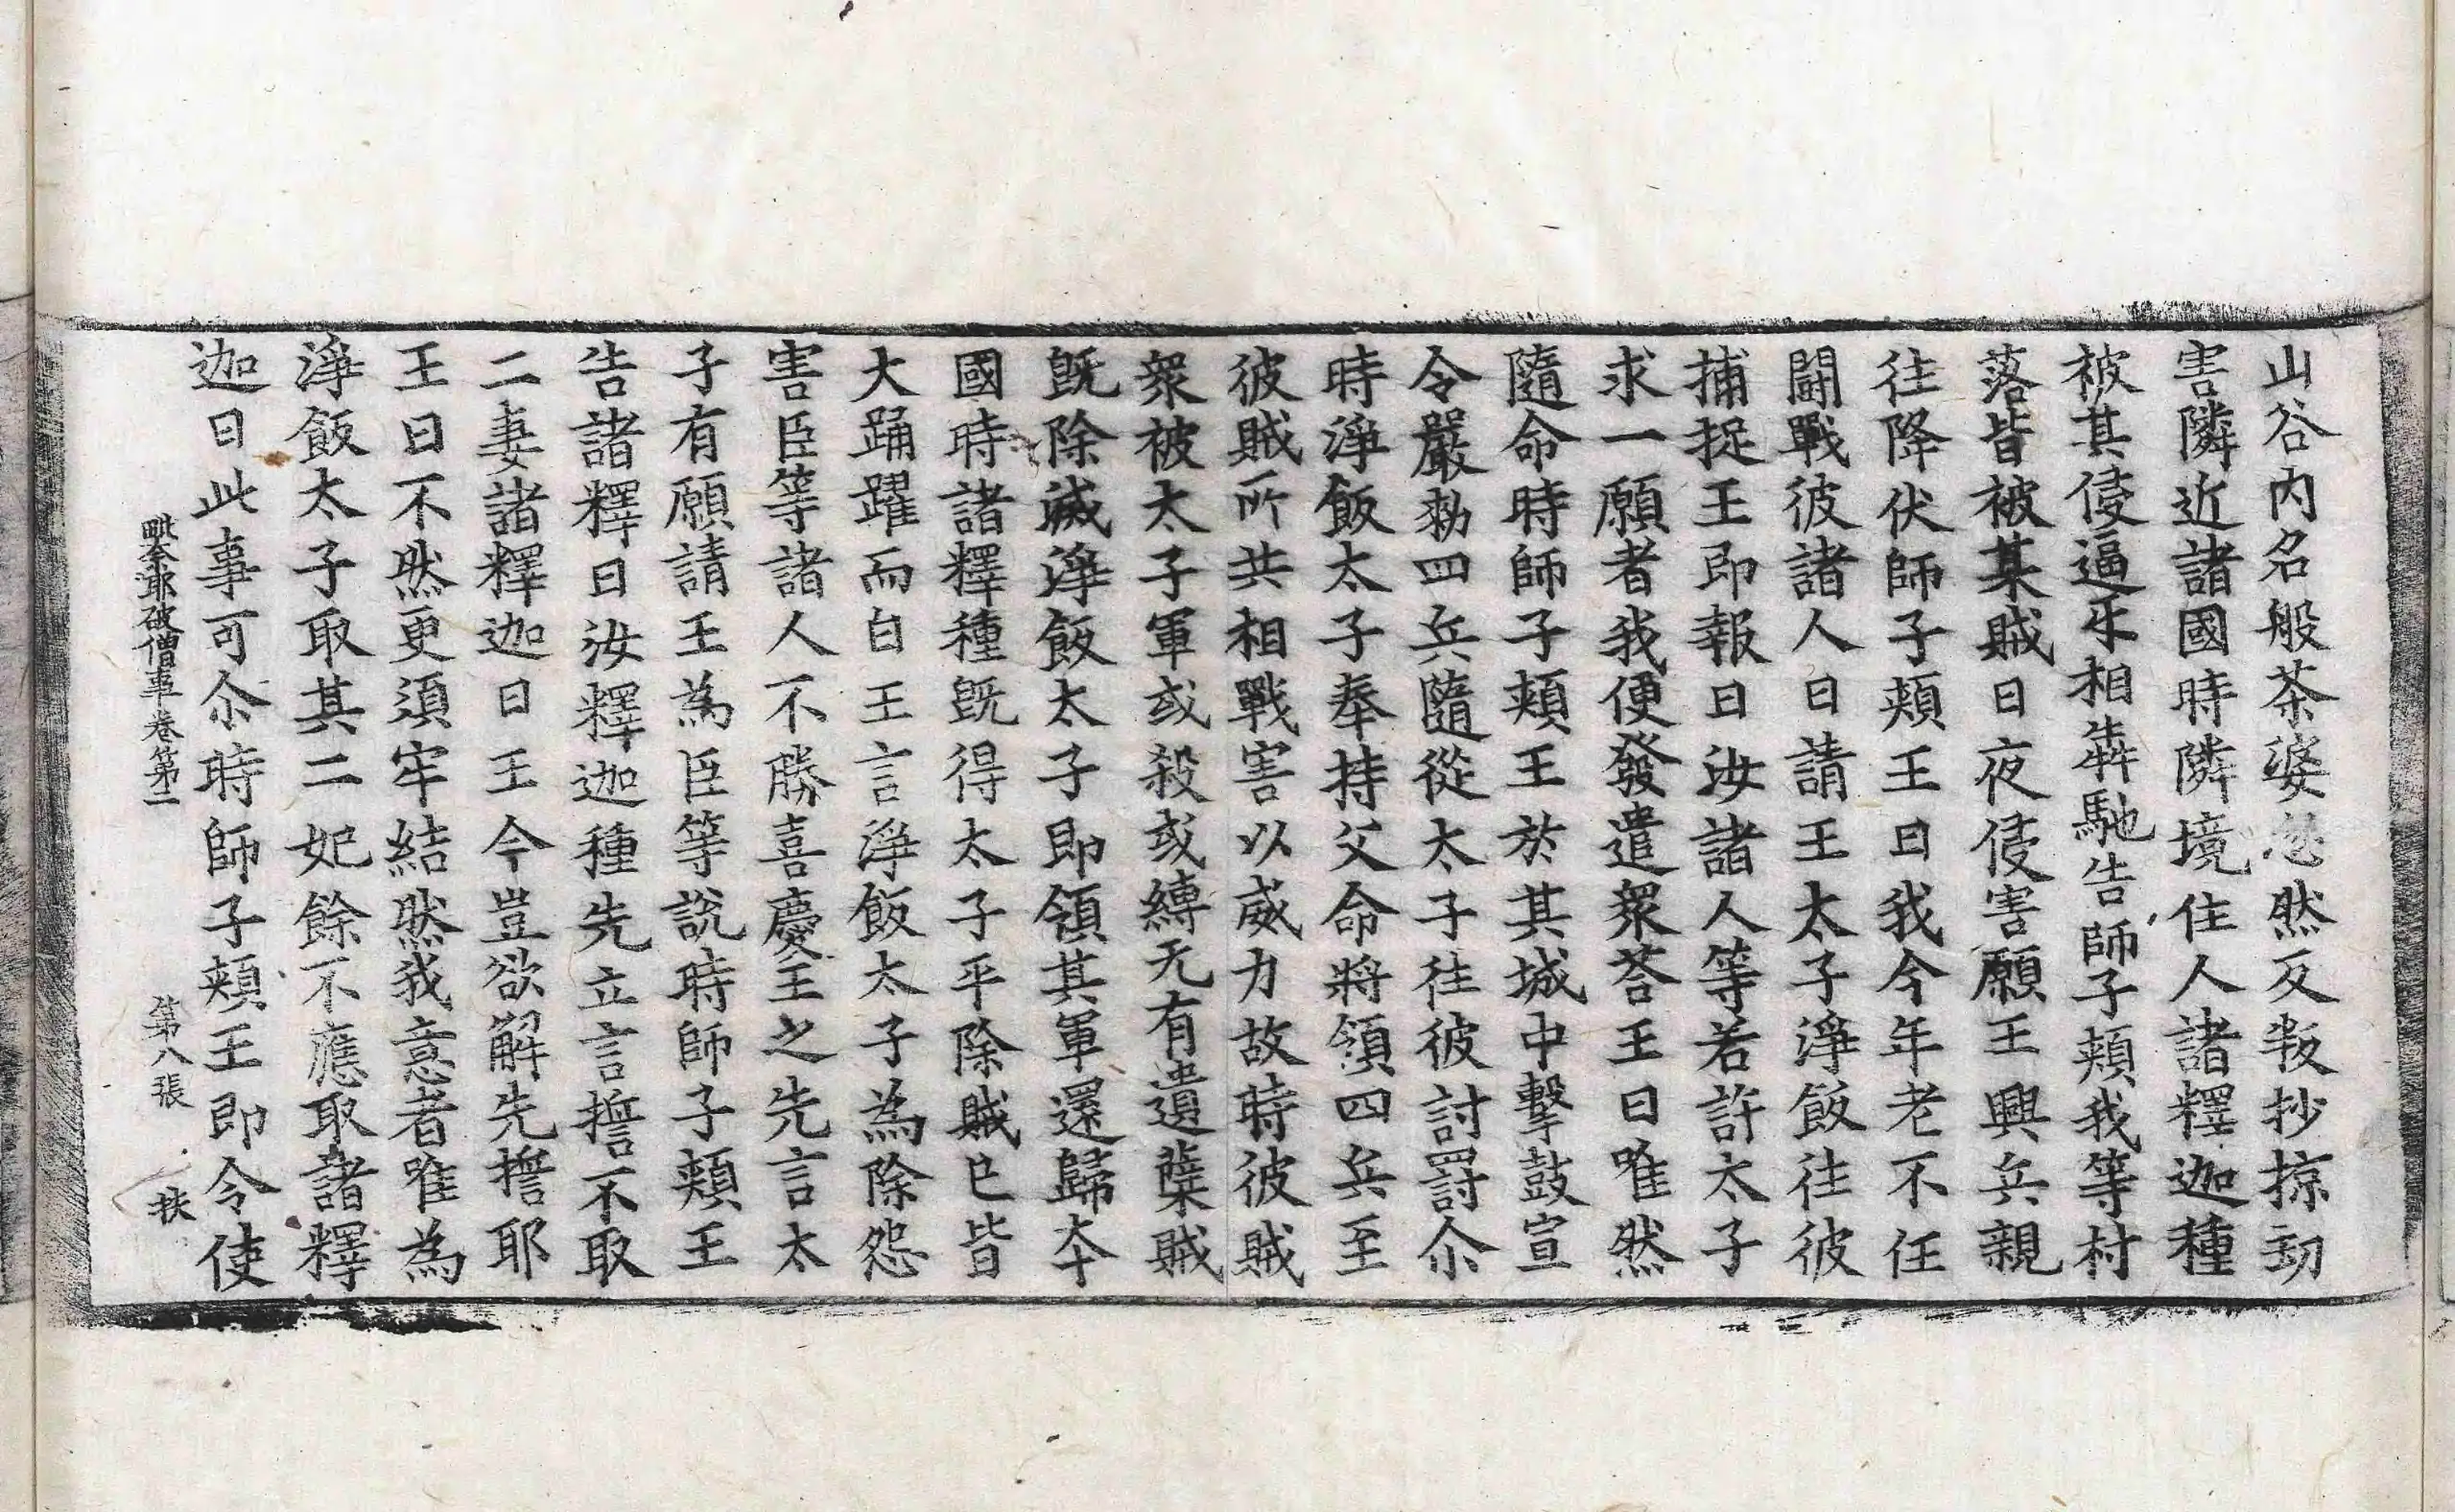 山谷内名般茶婆忽然反叛抄掠刧
害隣近諸國時隣境住人諸釋迦種
被其侵逼㸦相犇馳告師子頬我等村
落皆被某賊日夜侵害願王興兵親
往降伏師子頬王曰我今年老不任
鬪戰彼諸人曰請王太子淨飯往彼
捕捉王即報曰汝諸人等若許太子
求一願者我便發遣衆荅王曰唯然
隨命時師子頬王於其城中擊鼓宣
令嚴勑四兵隨從太子往彼討罸尒
時淨飯太子奉持父命將領四兵至
彼賊所共相戰害以威力故時彼賊
衆被太子軍或殺或縛无有遺蘖賊
旣除滅淨飯太子即領其軍還歸夲
國時諸釋種旣得太子平除賊已皆
大踊躍而白王言淨飯太子為除怨
害臣等諸人不勝喜慶王之先言太
子有願請王為臣等說時師子頬王
告諸釋曰汝釋迦種先立言誓不取
二妻諸釋迦曰王今豈欲解先擔耶
王曰不然更須牢結然我意者唯為
淨飯太子取其二妃餘不應取諸釋
迦曰此事可尒時師子頬王即令使
毗奈耶破僧事卷第二 第八張 扶